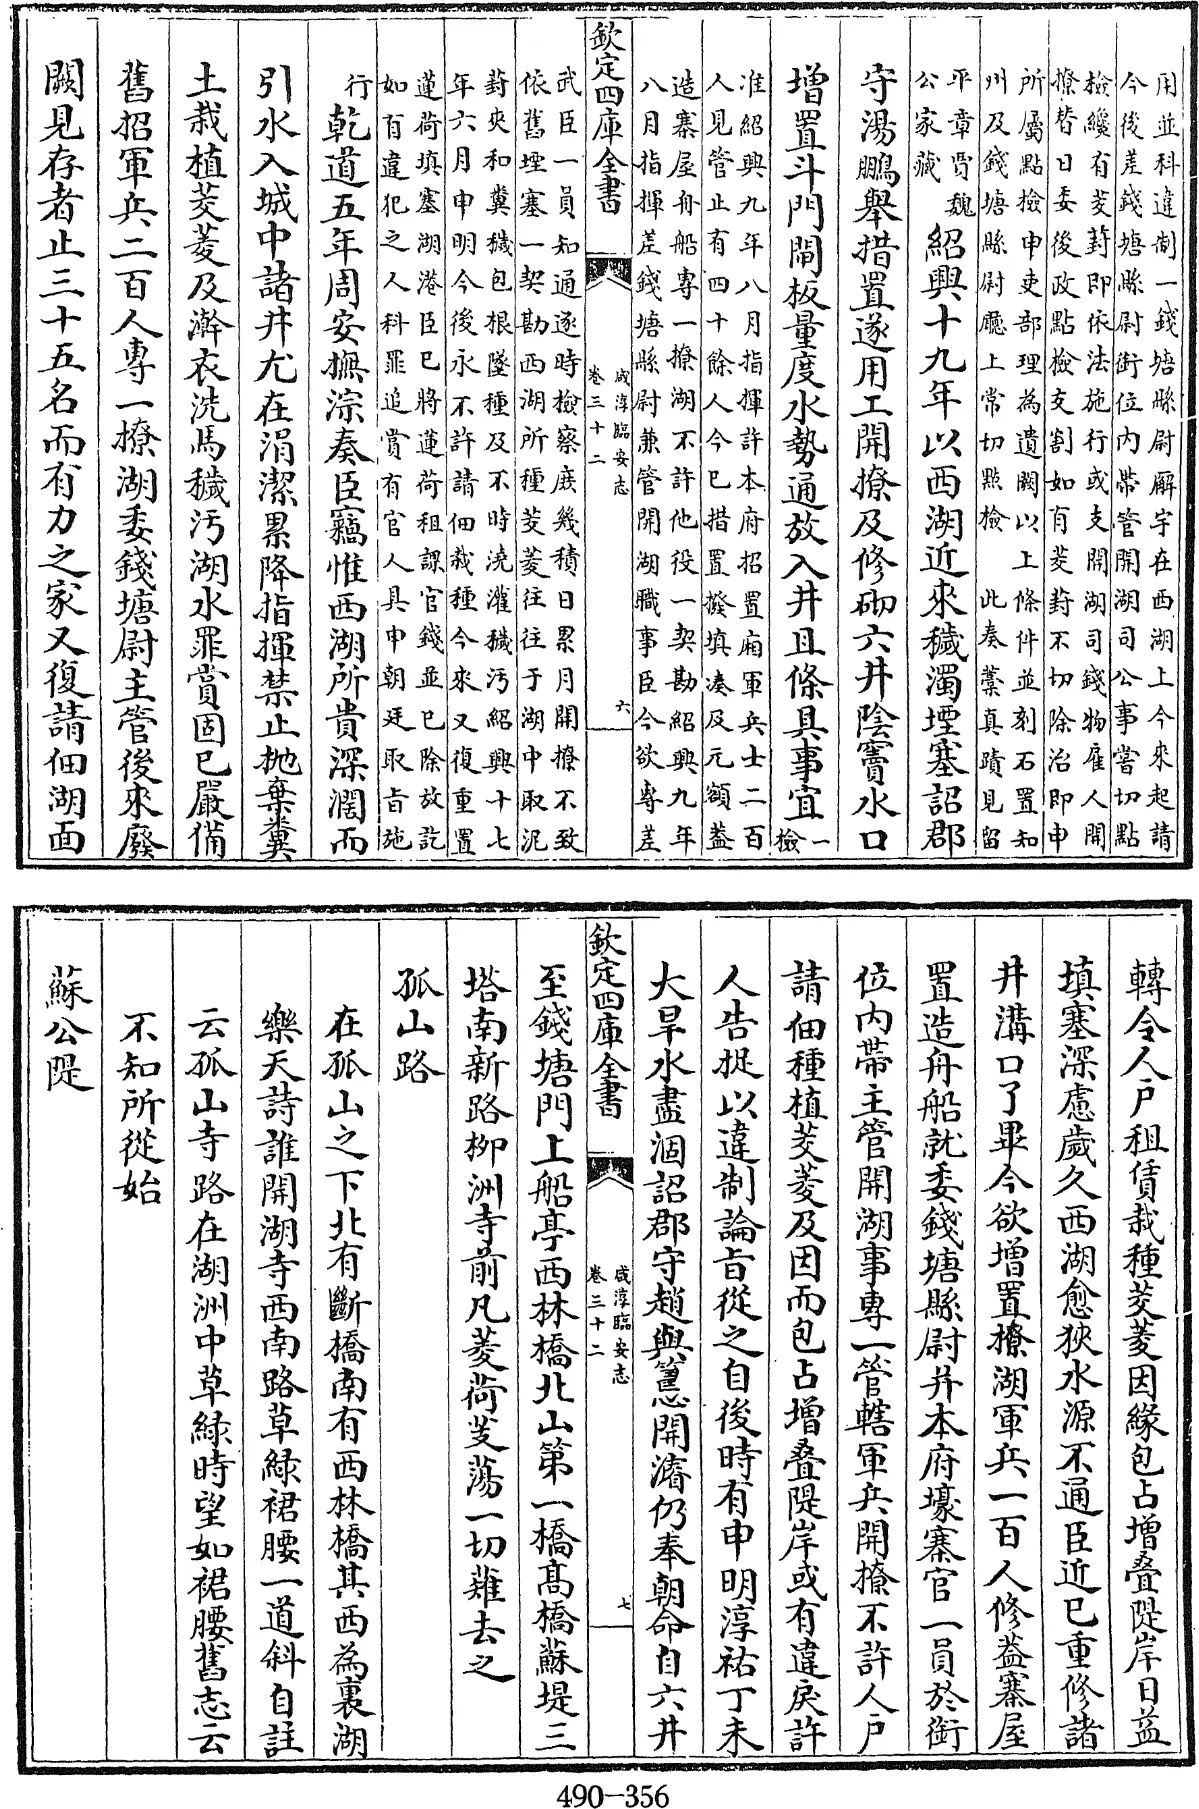 用並科違制一錢塘縣尉廨宇在西湖上今來起請
今後差錢塘縣尉銜位內帶管開湖司公事嘗切點
檢纔有茭葑即依法施行或支開湖司錢物雇人開
撩替日委後政點檢交割如有茭葑不切除治即申
所屬點檢申吏部理為遺闕以上條件並刻石置知
州及錢塘縣尉廳上常切點檢 此奏藁真蹟見留
平章賈魏
公家藏
紹興十九年以西湖近來穢濁堙塞詔郡
守湯鵬舉措置遂用工開撩及修砌六井陰竇水口
增置斗門閘板量度水勢通放入井且條具事宜
一
檢
准紹興九年八月指揮許本府招置廂軍兵士二百
人見管止有四十餘人今已措置撥填湊及元額蓋
造寨屋舟船專一撩湖不許他役一契勘紹興九年
八月指揮差錢塘縣尉兼管開湖職事臣今欲專差
欽定四庫全書
咸淳臨安志
卷三十二
六
武臣一員知通逐時檢察庶幾積日累月開撩不致
依舊堙塞一契勘西湖所種茭菱往往于湖中取泥
葑夾和糞穢包根墜種及不時澆灌穢污紹興十七
年六月申明今後永不許請佃栽種今來又復重置
蓮荷填塞湖港臣已將蓮荷租課官錢並已除放訖
如有違犯之人科罪追賞有官人具申朝廷取旨施
行
乾道五年周安撫淙奏臣竊惟西湖所貴深濶而
引水入城中諸井尤在涓潔累降指揮禁止抛棄糞
土栽植茭菱及澣衣洗馬穢污湖水罪賞固已嚴備
舊招軍兵二百人專一撩湖委錢塘尉主管後來廢
闕見存者止三十五名而有力之家又復請佃湖面
轉令人戶租賃栽種茭菱因緣包占增疊隄岸日益
填塞深慮歲久西湖愈狹水源不通臣近已重修諸
井溝口了畢今欲增置撩湖軍兵一百人修葢寨屋
置造舟船就委錢塘縣尉并本府壕寨官一員於銜
位內帶主管開湖事專一管轄軍兵開撩不許人戶
請佃種植茭菱及因而包占增疊隄岸或有違戾許
人告捉以違制論旨從之自後時有申明淳祐丁未
大旱水盡涸詔郡守趙與𥲅開濬仍奉朝命自六井
欽定四庫全書
咸淳臨安志
卷三十二
七
至錢塘門上船亭西林橋北山第一橋高橋蘇堤三
塔南新路柳洲寺前凡菱荷茭蕩一切薙去之
孤山路
在孤山之下北有斷橋南有西林橋其西為裏湖
樂天詩誰開湖寺西南路草緑裙腰一道斜自註
云孤山寺路在湖洲中草緑時望如裙腰舊志云
不知所從始
蘇公隄
490-356